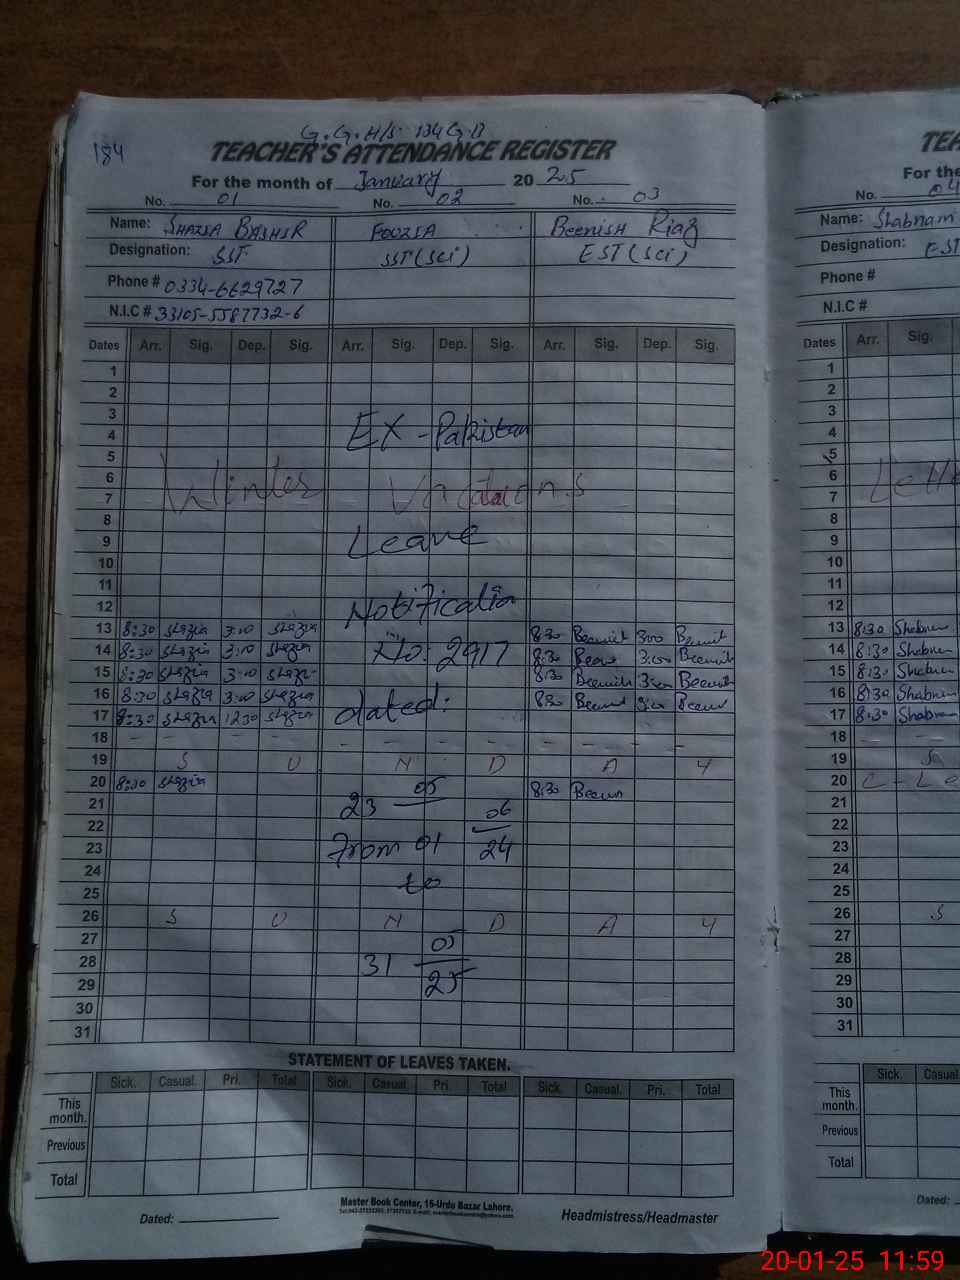 184
G.G.H/S 134 G.B
TEACHER'S ATTENDANCE REGISTER
For the month of January 2025
No. 01 No. 02 No. 03
Name: SHAZIA BASHIR FOOZIA Beenish Riaz
Designation: SST SST (Sci) EST (Sci)
Phone # 0334-6629727
N.I.C # 33105-5587732-6
Dates Arr. Sig. Dep. Sig. Arr. Sig. Dep. Sig. Arr. Sig. Dep. Sig.
1
2
3
4 EX-Pakistan
5
6 Winter Vacations
7
8
9 Leave
10
11
12 Notification
13 8:30 Shazia 3:00 Shazia 8:30 3:00
14 8:30 Shazia 3:00 Shazia No: 2917 8:30 3:00
15 8:30 Shazia 3:00 Shazia 8:30 3:00
16 8:30 Shazia 3:00 Shazia 8:30 3:00
17 8:30 Shazia 12:30 Shazia dated:
18 - - - - - - - - - -
19 S U N D A Y
20 8:30 Shazia 05 8:30
21 23 06
22
23 From 01 24
24 to
25
26 S U N D A Y
27 05
28 31
29 25
30
31
STATEMENT OF LEAVES TAKEN.
Sick. Casual. Pri. Total Sick. Casual. Pri. Total Sick. Casual. Pri. Total
This month.
Previous
Total
Master Book Center, 16-Urdu Bazar Lahore.
Dated: Headmistress/Headmaster
TEA
For the
No. 04
Name: Shabnam
Designation: EST
Phone #
N.I.C #
Dates Arr. Sig.
1
2
3
4
5
6
7
8
9
10
11
12
13 8:30 Shabnam
14 8:30 Shabnam
15 8:30 Shabnam
16 8:30 Shabnam
17 8:30 Shabnam
18 - -
19
20
21
22
23
24
25
26 S
27
28
29
30
31
Sick. Casual
This month.
Previous
Total
Dated:
20-01-25 11:59